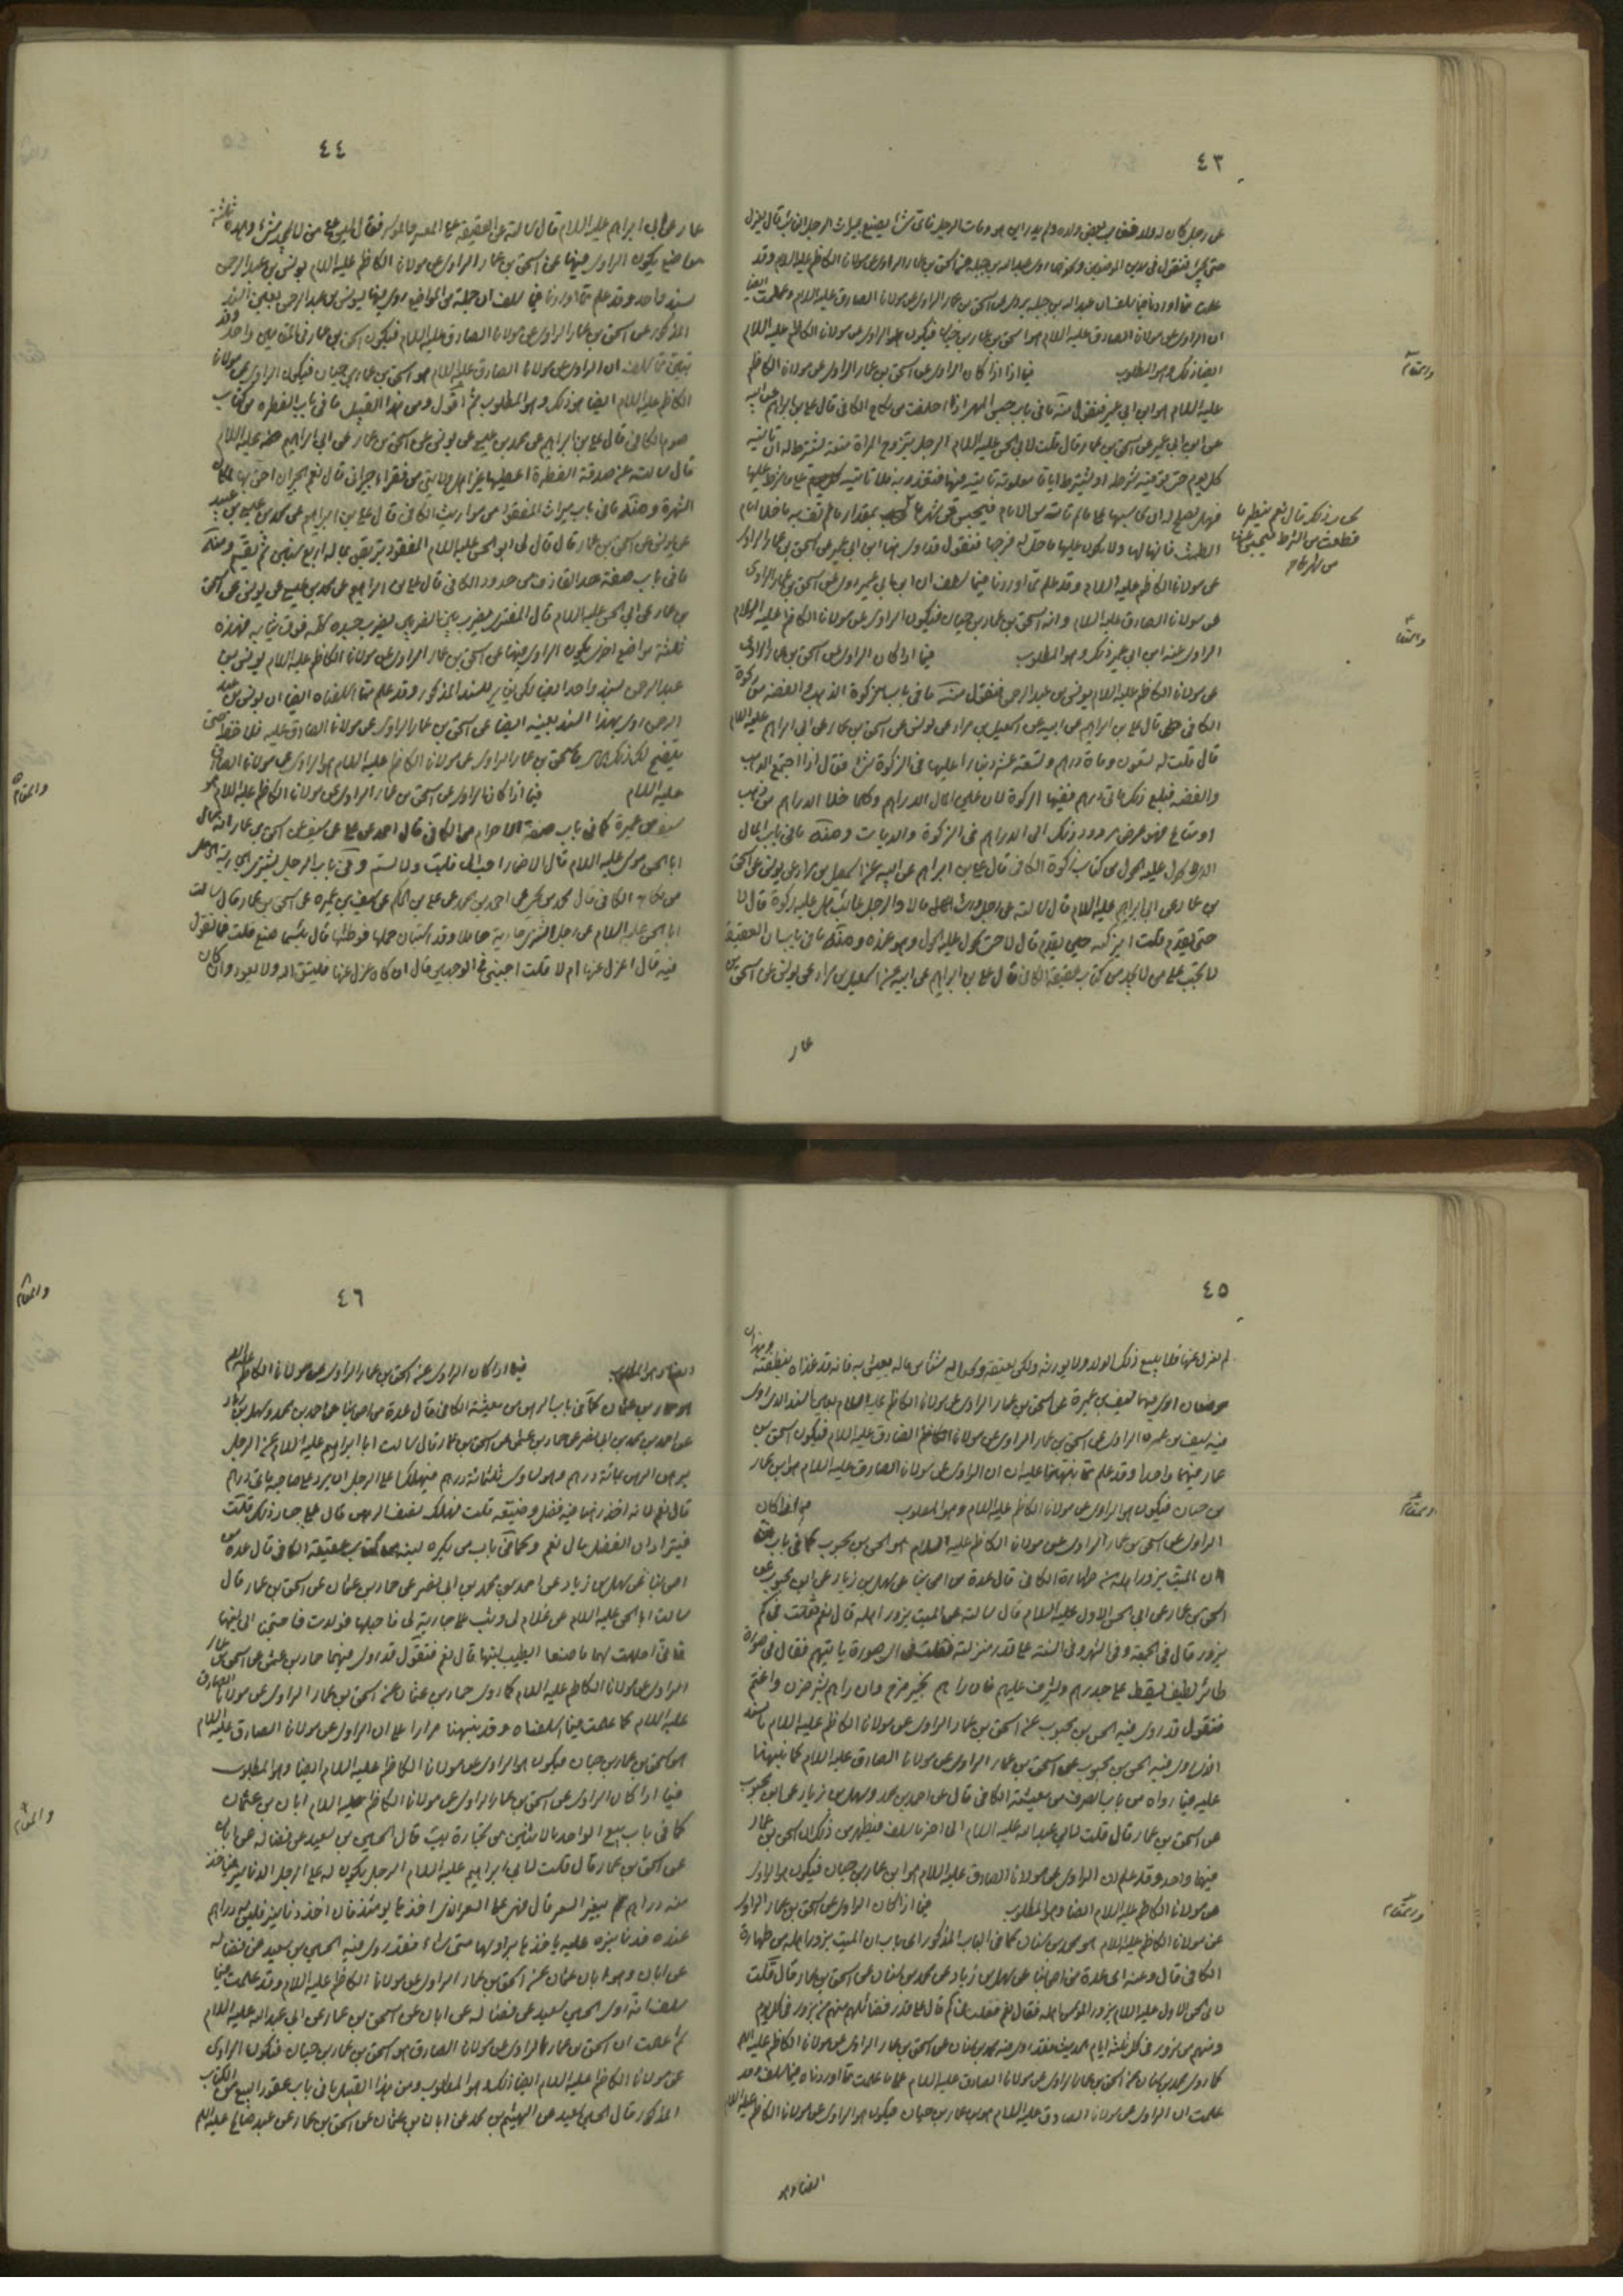 ٤٣
عن رجل كان له ولد فغاب بعض ولده ولم يدر اين هو ومات الرجل فاي شئ يصنع بميراث الرجل الغايب قال يعزل
حتى يجئ فنقول
علمت مما اوردنا فيما سلف ان عبدالله بن جبلة يروى عن اسحق بن عمار الراوى عن مولانا الصادق عليه السلام وعلمت ايضا
ان الراوى عن مولانا الصادق عليه السلام هو اسحق بن عمار بن حيان فيكون هو الراوى عن مولانا الكاظم عليه السلام
ايضا وذلك هو المطلوب فيما اذا كان الراوى عن اسحق بن عمار الراوى عن مولانا الكاظم
عليه السلام هو ابن ابي عمير فنقول منه ما في باب حبس المهر اذا اخلفت من نكاح الكافي قال علي بن ابراهيم عن ابيه
عن ابن ابي عمير عن اسحق بن عمار قال قلت لابي الحسن عليه السلام الرجل يتزوج المراة متعة تشترط له ان تاتيه
كل يوم حتى توفيه شرطه او يشترط اياما معلومة تاتيه فيها فتغدر به فلا تاتيه على ما شرطه عليها
فهل يصلح له ان يحاسبها على ما لم تاته من الايام فيحبس عنها بمقدار ما لم تف به ما خلا ايام
الطمث فانها لها ولا يكون عليها ما حل له فرجها فنقول قد روى هنا ابن ابي عمير عن اسحق بن عمار الراوى
عن مولانا الكاظم عليه السلام وقد علم مما اوردنا فيما سلف ان ابن ابي عمير روى عن اسحق بن عمار الراوى
عن مولانا الصادق عليه السلام وانه اسحق بن عمار بن حيان فيكون الراوى عن مولانا الكاظم عليه السلام
الراوى عنه ابن ابي عمير ذلك وهو المطلوب فيما اذا كان الراوى عن اسحق بن عمار الراوى
عن مولانا الكاظم عليه السلام يونس بن عبدالرحمن فنقول منه ما في باب زكوة الذهب والفضة من زكوة
الكافي قال علي بن ابراهيم عن ابيه عن اسمعيل بن مرار عن يونس عن اسحق بن عمار عن ابي ابراهيم عليه السلام
قال قلت له تسعون وماة درهم وتسعة عشر دينارا عليها في الزكوة شئ فقال اذا اجتمع الذهب
والفضة فبلغ ذلك مائتي درهم ففيها الزكوة لان عين المال الدراهم وكلما خلا الدراهم من ذهب
او متاع فهو عرض مردود ذلك الى الدراهم في الزكوة والديات ومنه ما في باب المال
الذى لا يحول عليه الحول من كتاب زكوة الكافي قال علي بن ابراهيم عن ابيه عن اسمعيل بن مرار عن يونس عن اسحق
بن عمار عن ابي ابراهيم عليه السلام قال سالته عن رجل ورث مالا والرجل غائب هل عليه زكوة قال لا
حتى يقدم قلت ايزكيه حين يقدم قال لا حتى يحول عليه الحول وهو عنده ومنه ما في باب ان العقيقة
لا تجب على من لا يجد من كتاب عقيقة الكافي قال علي بن ابراهيم عن ابيه عن اسمعيل بن مرار عن يونس عن اسحق بن
عمار
والمقام
والمقام
٤٤
عمار عن ابي ابراهيم عليه السلام قال سالته عن العقيقة على المعسر والموسر فقال ليس على من لا يجد شئ وهذه ثلثة
مواضع يكون الراوى فيها عن اسحق بن عمار الراوى عن مولانا الكاظم عليه السلام يونس بن عبدالرحمن
بسند واحد وقد علم مما اوردنا فيما سلف ان جملة من المواضع روى فيها يونس بن عبدالرحمن بعين السند
المذكور عن اسحق بن عمار الراوى عن مولانا الصادق عليه السلام فيكون اسحق بن عمار في المقامين واحد وقد
تبين مما سلف ان الراوى عن مولانا الصادق عليه السلام هو اسحق بن عمار بن حيان فيكون الراوى عن مولانا
الكاظم عليه السلام ايضا هو ذلك وهو المطلوب ثم اقول ومن هذا القبيل ما في باب الفطرة من كتاب
صوم الكافي قال علي بن ابراهيم عن محمد بن عيسى عن يونس عن اسحق بن عمار عن ابي ابراهيم عليه السلام
قال سالته عن صدقة الفطرة اعطيها غير اهل ولايتي من فقراء جيراني قال نعم الجيران احق بها لمكان
الشهرة ومنه ما في باب ميراث المفقود من مواريث الكافي قال علي بن ابراهيم عن محمد بن عيسى بن عبيد
عن يونس عن اسحق بن عمار قال قال لي ابو الحسن عليه السلام المفقود يتربص بماله اربع سنين ثم يقسم ومنه
ما في باب صفة حد القاذف من حدود الكافي قال علي بن ابراهيم عن محمد بن عيسى عن يونس عن اسحق
بن عمار عن ابي الحسن عليه السلام قال المفترى يضرب بين الضربين يضرب جسده كله فوق ثيابه فهذه
ثلثة مواضع اخرى يكون الراوى فيها عن اسحق بن عمار الراوى عن مولانا الكاظم عليه السلام يونس بن
عبدالرحمن بسند واحد ايضا لكن مغاير للسند المذكور وقد علم مما اسلفناه ايضا ان يونس بن عبد
الرحمن روى بهذا السند بعينه ايضا عن اسحق بن عمار الراوى عن مولانا الصادق عليه السلام فلاحظه حتى
يتضح لك ذلك فاسحق بن عمار الراوى عن مولانا الكاظم عليه السلام هو الراوى عن مولانا الصادق
عليه السلام فيما اذا كان الراوى عن اسحق بن عمار الراوى عن مولانا الكاظم عليه السلام هو
سيف بن عميرة كما في باب صفة الاحرام من الكافي قال احمد عن علي عن سيف عن اسحق بن عمار انه سال
ابا الحسن موسى عليه السلام قال الاضمار احب الى فلبّ ولا تسم وفي باب الرجل يشترى الجارية الحامل
من نكاح الكافي قال محمد بن يحيى عن احمد بن محمد عن علي بن الحكم عن سيف بن عميرة عن اسحق بن عمار قال سالت
ابا الحسن عليه السلام عن رجل اشترى جارية حاملا وقد استبان حملها فوطئها قال بئس ما صنع قلت فما تقول
فيه قال اعزل عنها ام لا قلت اجبني في الوجهين قال ان كان عزل عنها فليتق الله ولا يعود وان كان
والمقام
٤٥
لم يعزل عنها فلا يبيع ذلك الولد ولا يورثه ولكن يعتقه ويجعل له شيئا من ماله يعيش به فانه قد غذاه بنطفته وهذان
موضعان روى فيهما سيف بن عميرة عن اسحق بن عمار الراوى عن مولانا الكاظم عليه السلام بعين السند الذى روى
فيه سيف بن عميرة الراوى عن اسحق بن عمار الراوى عن مولانا الصادق عليه السلام فيكون اسحق بن
عمار فيهما واحدا وقد علم مما نبهنا عليه ان الراوى عن مولانا الصادق عليه السلام هو ابن عمار
بن حيان فيكون هو الراوى عن مولانا الكاظم عليه السلام وهو المطلوب فيما اذا كان
الراوى عن اسحق بن عمار الراوى عن مولانا الكاظم عليه السلام هو الحسن بن محبوب كما في باب
ان الميت يزور اهله من طهارة الكافي قال عدة من اصحابنا عن سهل بن زياد عن ابن محبوب عن
اسحق بن عمار عن ابي الحسن الاول عليه السلام قال سالته عن الميت يزور اهله قال نعم فقلت في كم
يزور قال في الجمعة وفي الشهر وفي السنة على قدر منزلته فقلت في اى صورة ياتيهم فقال في صورة
طائر لطيف يسقط على جدرهم ويشرف عليهم فان راهم بخير فرح وان راهم بشر حزن واغتم
فنقول قد روى فيه الحسن بن محبوب عن اسحق بن عمار الراوى عن مولانا الكاظم عليه السلام بالسند
الذى روى فيه الحسن بن محبوب عن اسحق بن عمار الراوى عن مولانا الصادق عليه السلام كما نبهنا
عليه فيما رواه من باب الصرف من معيشة الكافي قال عن احمد بن محمد وسهل بن زياد عن ابن محبوب
عن اسحق بن عمار قال قلت لابي عبدالله عليه السلام الى اخر ما سلف فيظهر من ذلك ان اسحق بن عمار
فيهما واحد وقد علم ان الراوى عن مولانا الصادق عليه السلام هو ابن عمار بن حيان فيكون هو الراوى
عن مولانا الكاظم عليه السلام ايضا وهو المطلوب فيما اذا كان الراوى عن اسحق بن عمار الراوى
عن مولانا الكاظم عليه السلام هو محمد بن سنان كما في الباب المذكور اى باب ان الميت يزور اهله من طهارة
الكافي قال وعنه اى عدة من اصحابنا عن سهل بن زياد عن محمد بن سنان عن اسحق بن عمار قال قلت
لابي الحسن الاول عليه السلام يزور المؤمن اهله فقال نعم فقلت في كم قال على قدر فضائلهم منهم من يزور في كل يوم
ومنهم من يزور في كل ثلثة ايام الحديث فقد روى فيه محمد بن سنان عن اسحق بن عمار الراوى عن مولانا الكاظم عليه السلام
كما روى محمد بن سنان عن اسحق بن عمار الراوى عن مولانا الصادق عليه السلام على ما علمت مما اوردناه فيما سلف وقد
علمت ان الراوى عن مولانا الصادق عليه السلام هو ابن عمار بن حيان فيكون هو الراوى عن مولانا الكاظم عليه السلام
ايضا وهو
والمقام
والمقام
٤٦
ايضا وهو المطلوب فيما اذا كان الراوى عن اسحق بن عمار الراوى عن مولانا الكاظم عليه السلام
هو حماد بن عثمان كما في باب الرهن من معيشة الكافي قال عدة من اصحابنا عن احمد بن محمد وسهل بن زياد
عن احمد بن محمد بن ابي نصر عن حماد بن عثمان عن اسحق بن عمار قال سالت ابا ابراهيم عليه السلام عن الرجل
يرهن الرهن بمائة درهم وهو يساوى ثلثمائة درهم فيهلك اعلى الرجل ان يرد على صاحبه مائتي درهم
قال نعم لانه اخذ رهنا فيه فضل وضيعه قلت فهلك نصف الرهن قال على حساب ذلك قلت
فيترادان الفضل قال نعم وكما في باب من يكره لبنه من كتاب عقيقة الكافي قال عدة من
اصحابنا عن سهل بن زياد عن احمد بن محمد بن ابي نصر عن حماد بن عثمان عن اسحق بن عمار قال
سالت ابا الحسن عليه السلام عن غلام لي وثب على جارية لي فاحبلها فولدت فاحتجنا الى لبنها
فاني احللت لهما ما صنعا ايطيب لبنها قال نعم فنقول قد روى فيهما حماد بن عثمان عن اسحق بن عمار
الراوى عن مولانا الكاظم عليه السلام كما روى حماد بن عثمان عن اسحق بن عمار الراوى عن مولانا الصادق
عليه السلام كما علمت فيما اسلفناه وقد نبهنا مرارا على ان الراوى عن مولانا الصادق عليه السلام
هو اسحق بن عمار بن حيان فيكون هو الراوى عن مولانا الكاظم عليه السلام ايضا وهو المطلوب
فيما اذا كان الراوى عن اسحق بن عمار الراوى عن مولانا الكاظم عليه السلام ابان بن عثمان
كما في باب بيع الواحد بالاثنين من تجارة يب قال الحسين بن سعيد عن فضالة عن ابان
عن اسحق بن عمار قال قلت لابي ابراهيم عليه السلام الرجل يكون له على الرجل الدنانير فياخذ
منه دراهم ثم يتغير السعر قال فهي له على السعر الذى اخذها يومئذ فان اخذ دنانير فليس له دراهم
عنده فدنانيره عليه ياخذها براسها متى شاء فقد روى فيه الحسين بن سعيد عن فضالة
عن ابان وهو ابان بن عثمان عن اسحق بن عمار الراوى عن مولانا الكاظم عليه السلام وقد علمت فيما
سلف انه روى الحسين بن سعيد عن فضالة عن ابان عن اسحق بن عمار عن ابي عبدالله عليه السلام
كما علمت ان اسحق بن عمار الراوى عن مولانا الصادق هو اسحق بن عمار بن حيان فيكون الراوى
عن مولانا الكاظم عليه السلام ايضا ذلك وهو المطلوب ومن هذا القبيل ما في باب عقود البيع من الكتاب
المذكور قال الحسين بن سعيد عن الهيثم بن محمد عن ابان بن عثمان عن اسحق بن عمار عن عبد صالح عليه السلام
والمقام
والمقام